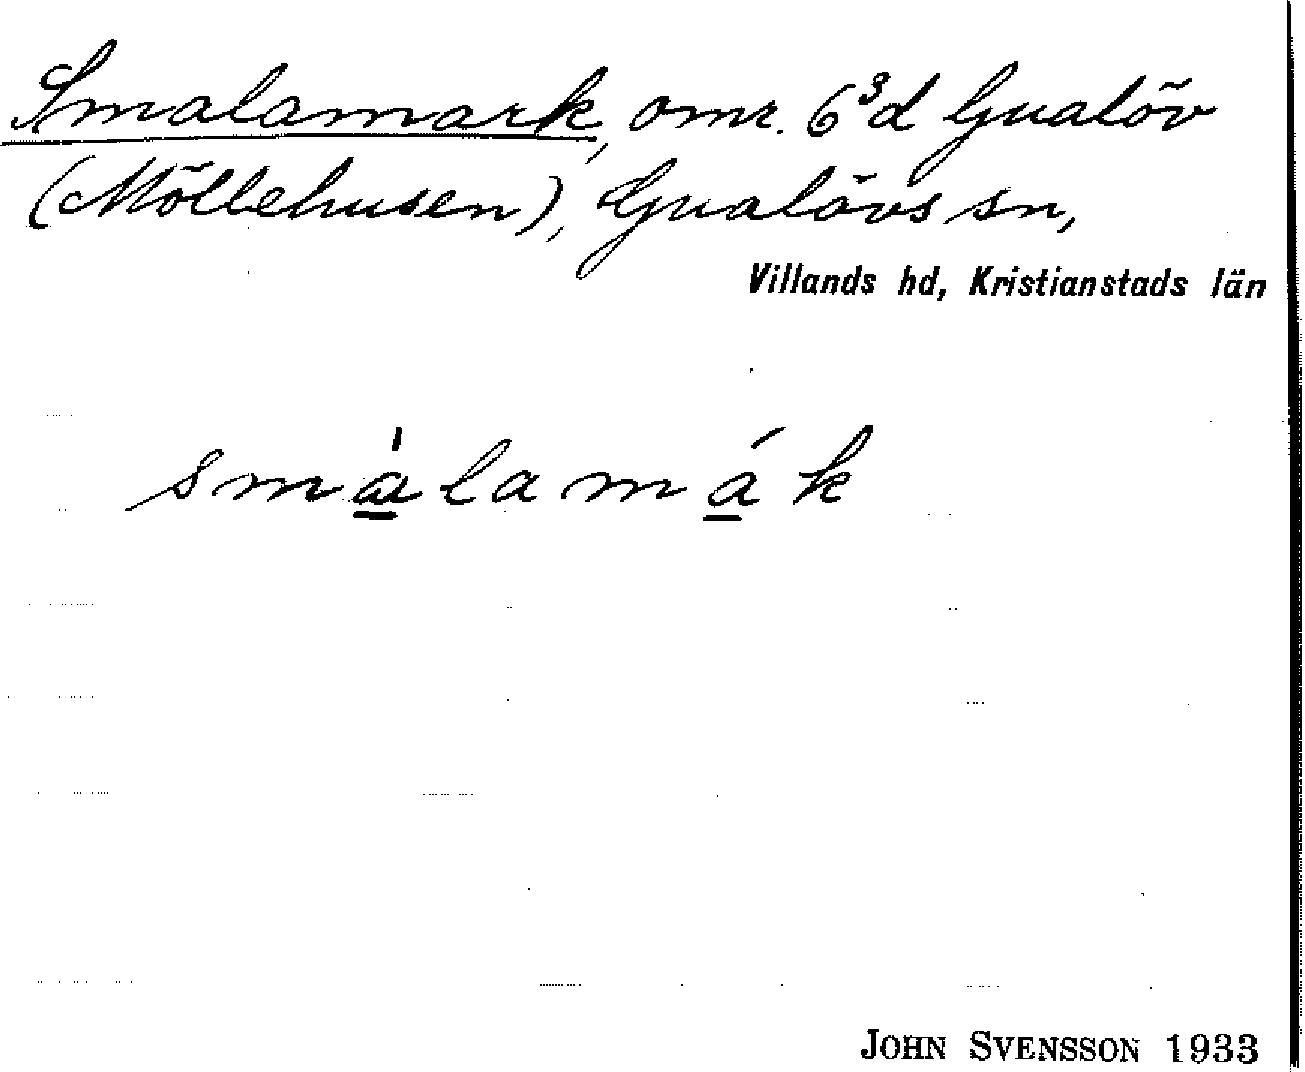 Smalamark, omr. 6³d Gualöv
(Möllehusen), Gualövs sn,
Villands hd, Kristianstads län
smàlamák
JOHN SVENSSON 1933